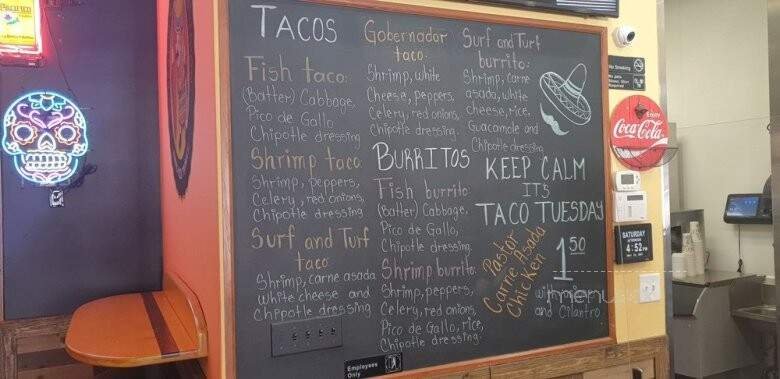 TACOS
Fish taco:
(Batter) Cabbage,
Pico de Gallo
Chipotle dressing
Shrimp taco:
Shrimp, peppers,
Celery, red onions,
Chipotle dressing
Surf and Turf
taco
Shrimp, carne asada
white cheese and
Chipotle dressing
Gobernador
taco:
Shrimp, white
Cheese, peppers,
Celery, red onions,
Chipotle dressing.
BURRITOS
Fish burrito:
(Batter) Cabbage,
Pico de Gallo,
Chipotle dressing.
Shrimp burrito:
Shrimp, peppers,
Celery, red onions,
Pico de Gallo, rice,
Chipotle dressing.
Surf and Turf
burrito:
Shrimp, carne
asada, white
cheese, rice,
Guacamole and
Chipotle dressing
KEEP CALM
IT'S
TACO TUESDAY
Pastor
Carne Asada
Chicken
1.50
and Cilantro
Pacifico
No Smoking
Enjoy
Coca-Cola
SATURDAY
AFTERNOON
4:52 PM
Employees
Only
menu